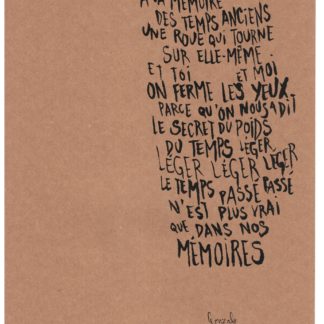 À LA MÉMOIRE
DES TEMPS ANCIENS
UNE ROUE QUI TOURNE
SUR ELLE-MÊME.
ET TOI ET MOI
ON FERME LES YEUX
PARCE QU'ON NOUS A DIT
LE SECRET DU POIDS
DU TEMPS LÉGER
LÉGER LÉGER LÉGER
LE TEMPS PASSÉ PASSE
N'EST PLUS VRAI
QUE DANS NOS
MÉMOIRES